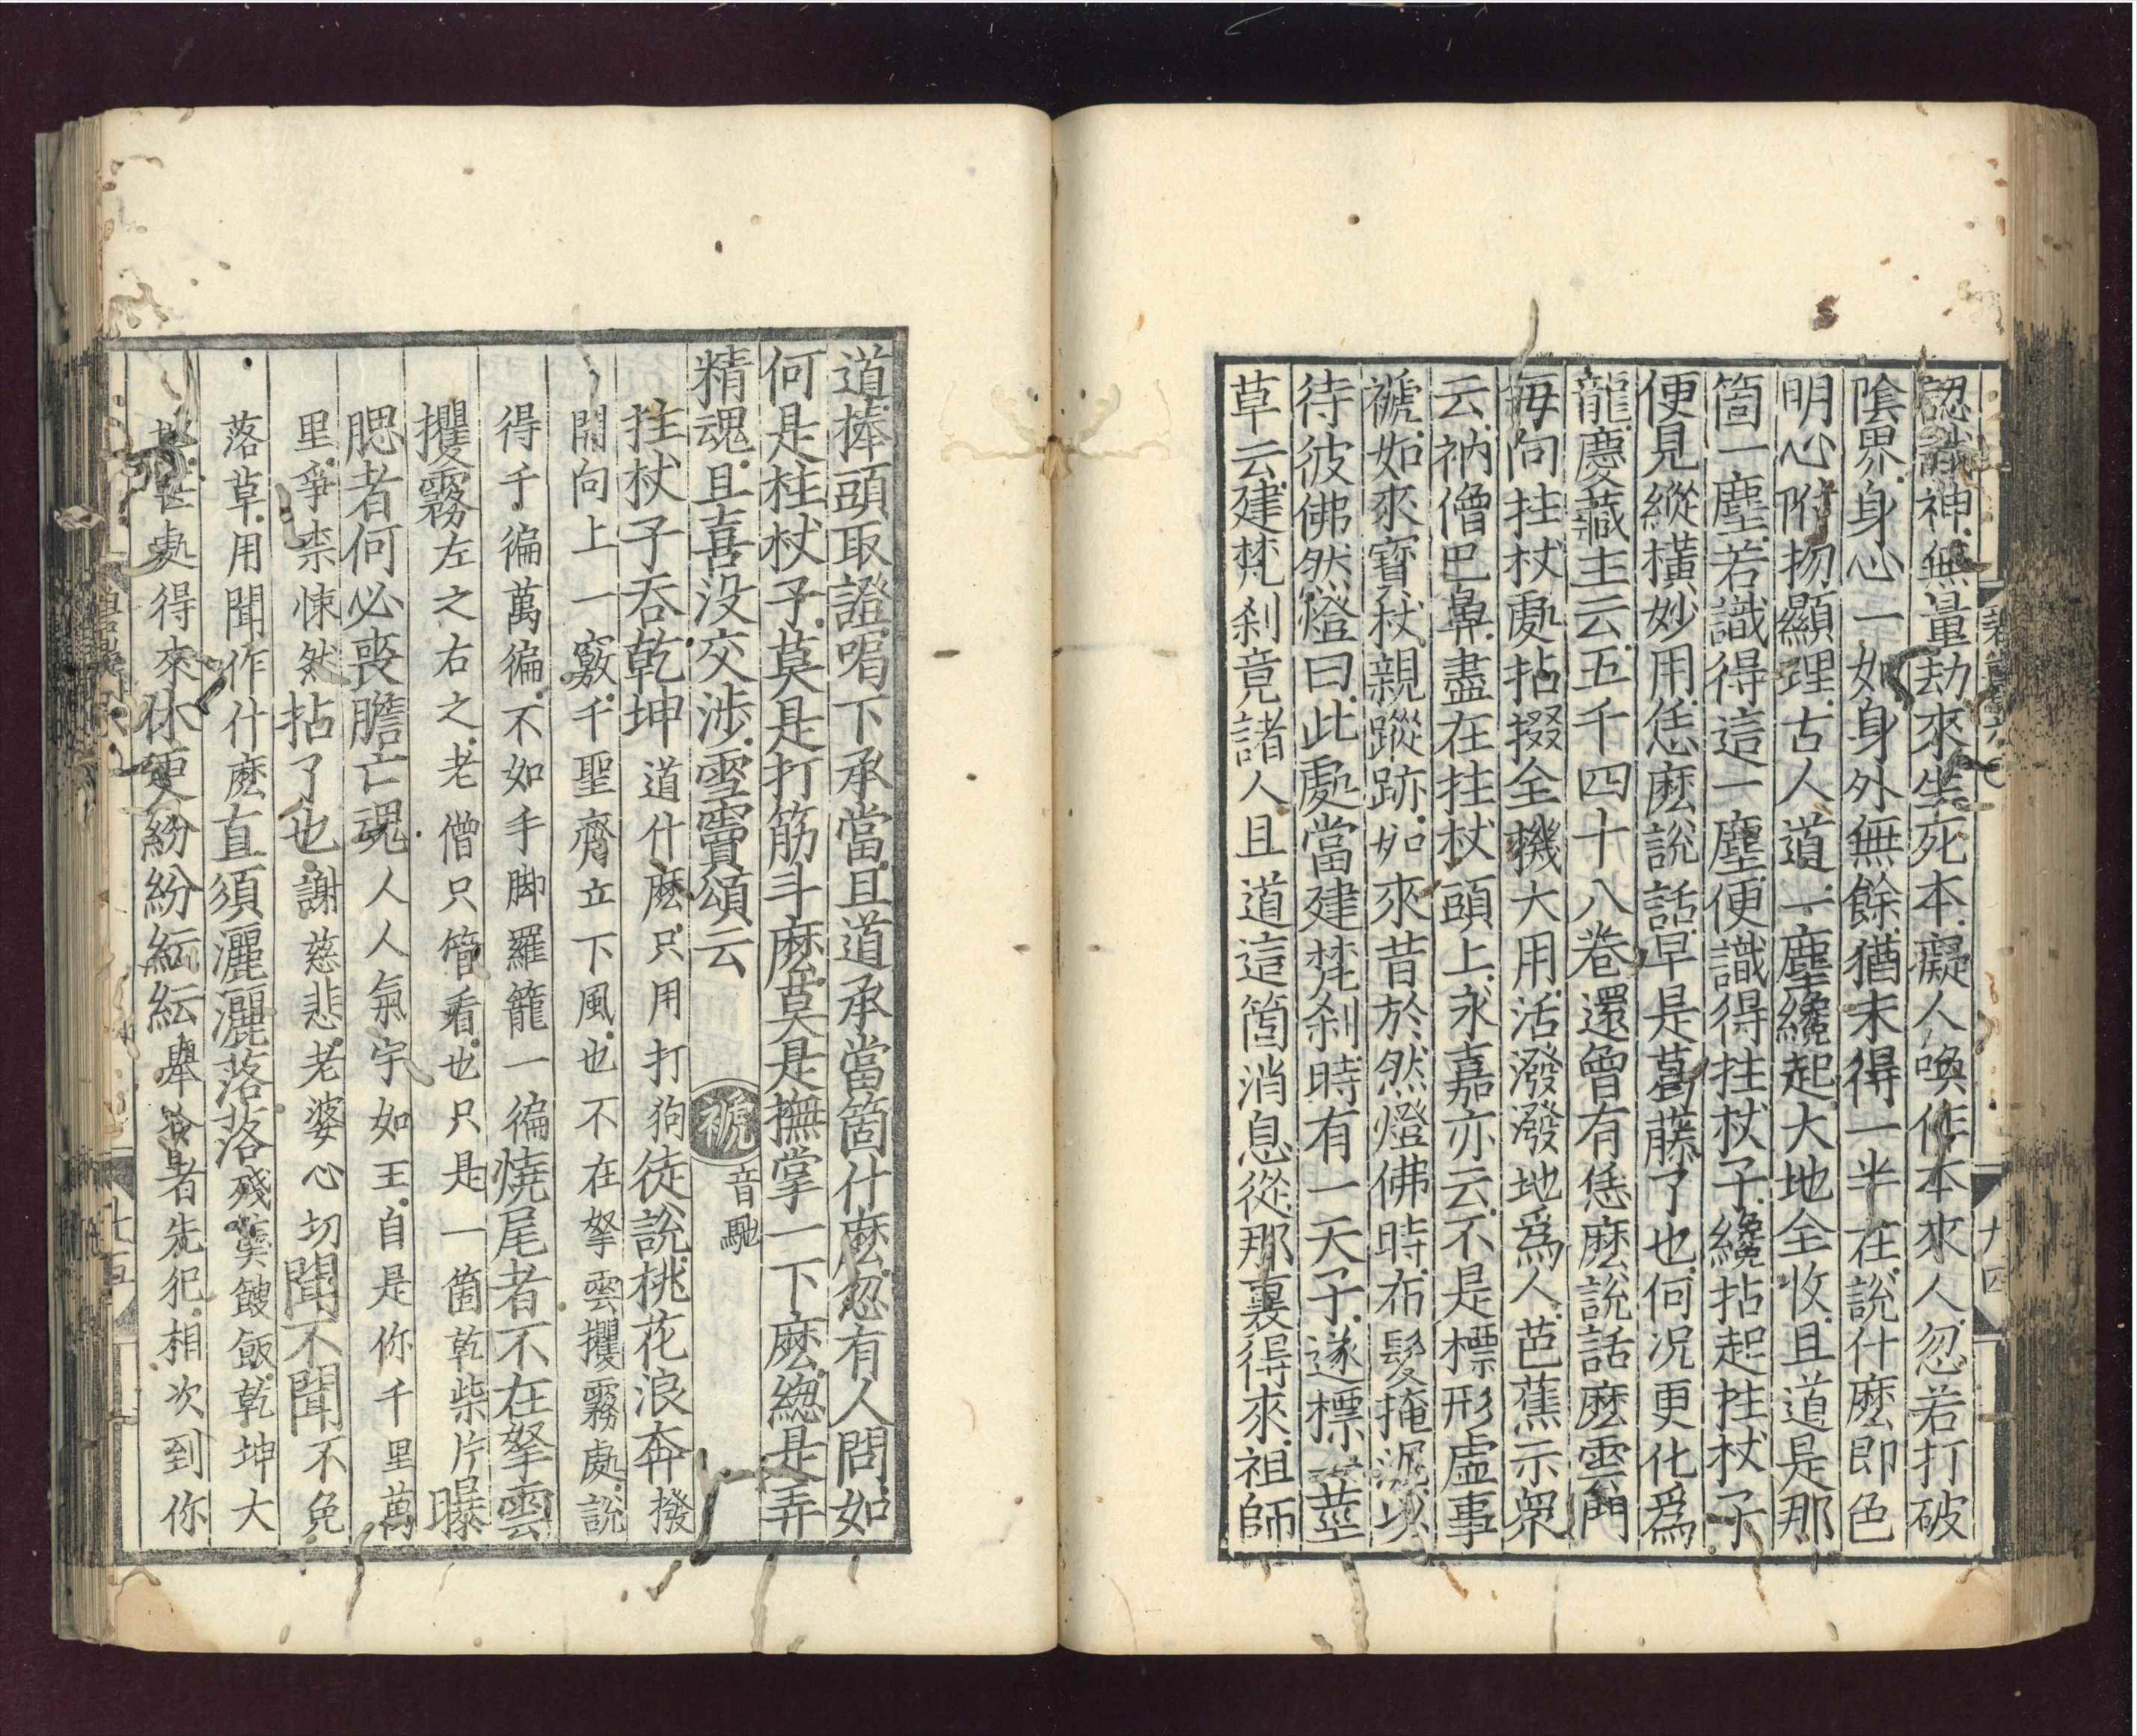 認識神無量劫來生死本癡人喚作本來人忽若打破
陰界身心一如身外無餘猶未得一半在說什麼即色
明心附物顯理古人道一塵纔起大地全收且道是那
箇一塵若識得這一塵便識得拄杖子纔拈起拄杖子
便見縱橫妙用恁麼說話早是葛藤了也何況更化爲
龍慶藏主云五千四十八卷還曾有恁麼說話麼雲門
每向拄杖處拈掇全機大用活潑潑地爲人芭蕉示衆
云衲僧巴鼻盡在拄杖頭上永嘉亦云不是標形虛事
褫如來寶杖親蹤跡如來昔於然燈佛時布髮掩泥以
待彼佛然燈曰此處當建梵刹時有一天子遂標一莖
草云建梵刹竟諸人且道這箇消息從那裏得來祖師
十四
道棒頭取證喝下承當且道承當箇什麼忽有人問如
何是柱杖子莫是打筋斗麼莫是撫掌一下麼總是弄
精魂且喜沒交涉雪竇頌云 褫音馳
拄杖子吞乾坤道什麼只用打狗徒說桃花浪奔撥
開向上一竅千聖齊立下風也不在拏雲攫霧處說
得千徧萬徧不如手脚羅籠一徧燒尾者不在拏雲
攫霧左之右之老僧只管看也只是一箇乾柴片曝
腮者何必喪膽亡魂人人氣宇如王自是你千里萬
里爭柰悚然拈了也謝慈悲老婆心切聞不聞不免
落草用聞作什麼直須灑灑落落殘羹餿飯乾坤大
地甚處得來休更紛紛紜紜舉令者先犯相次到你
十五